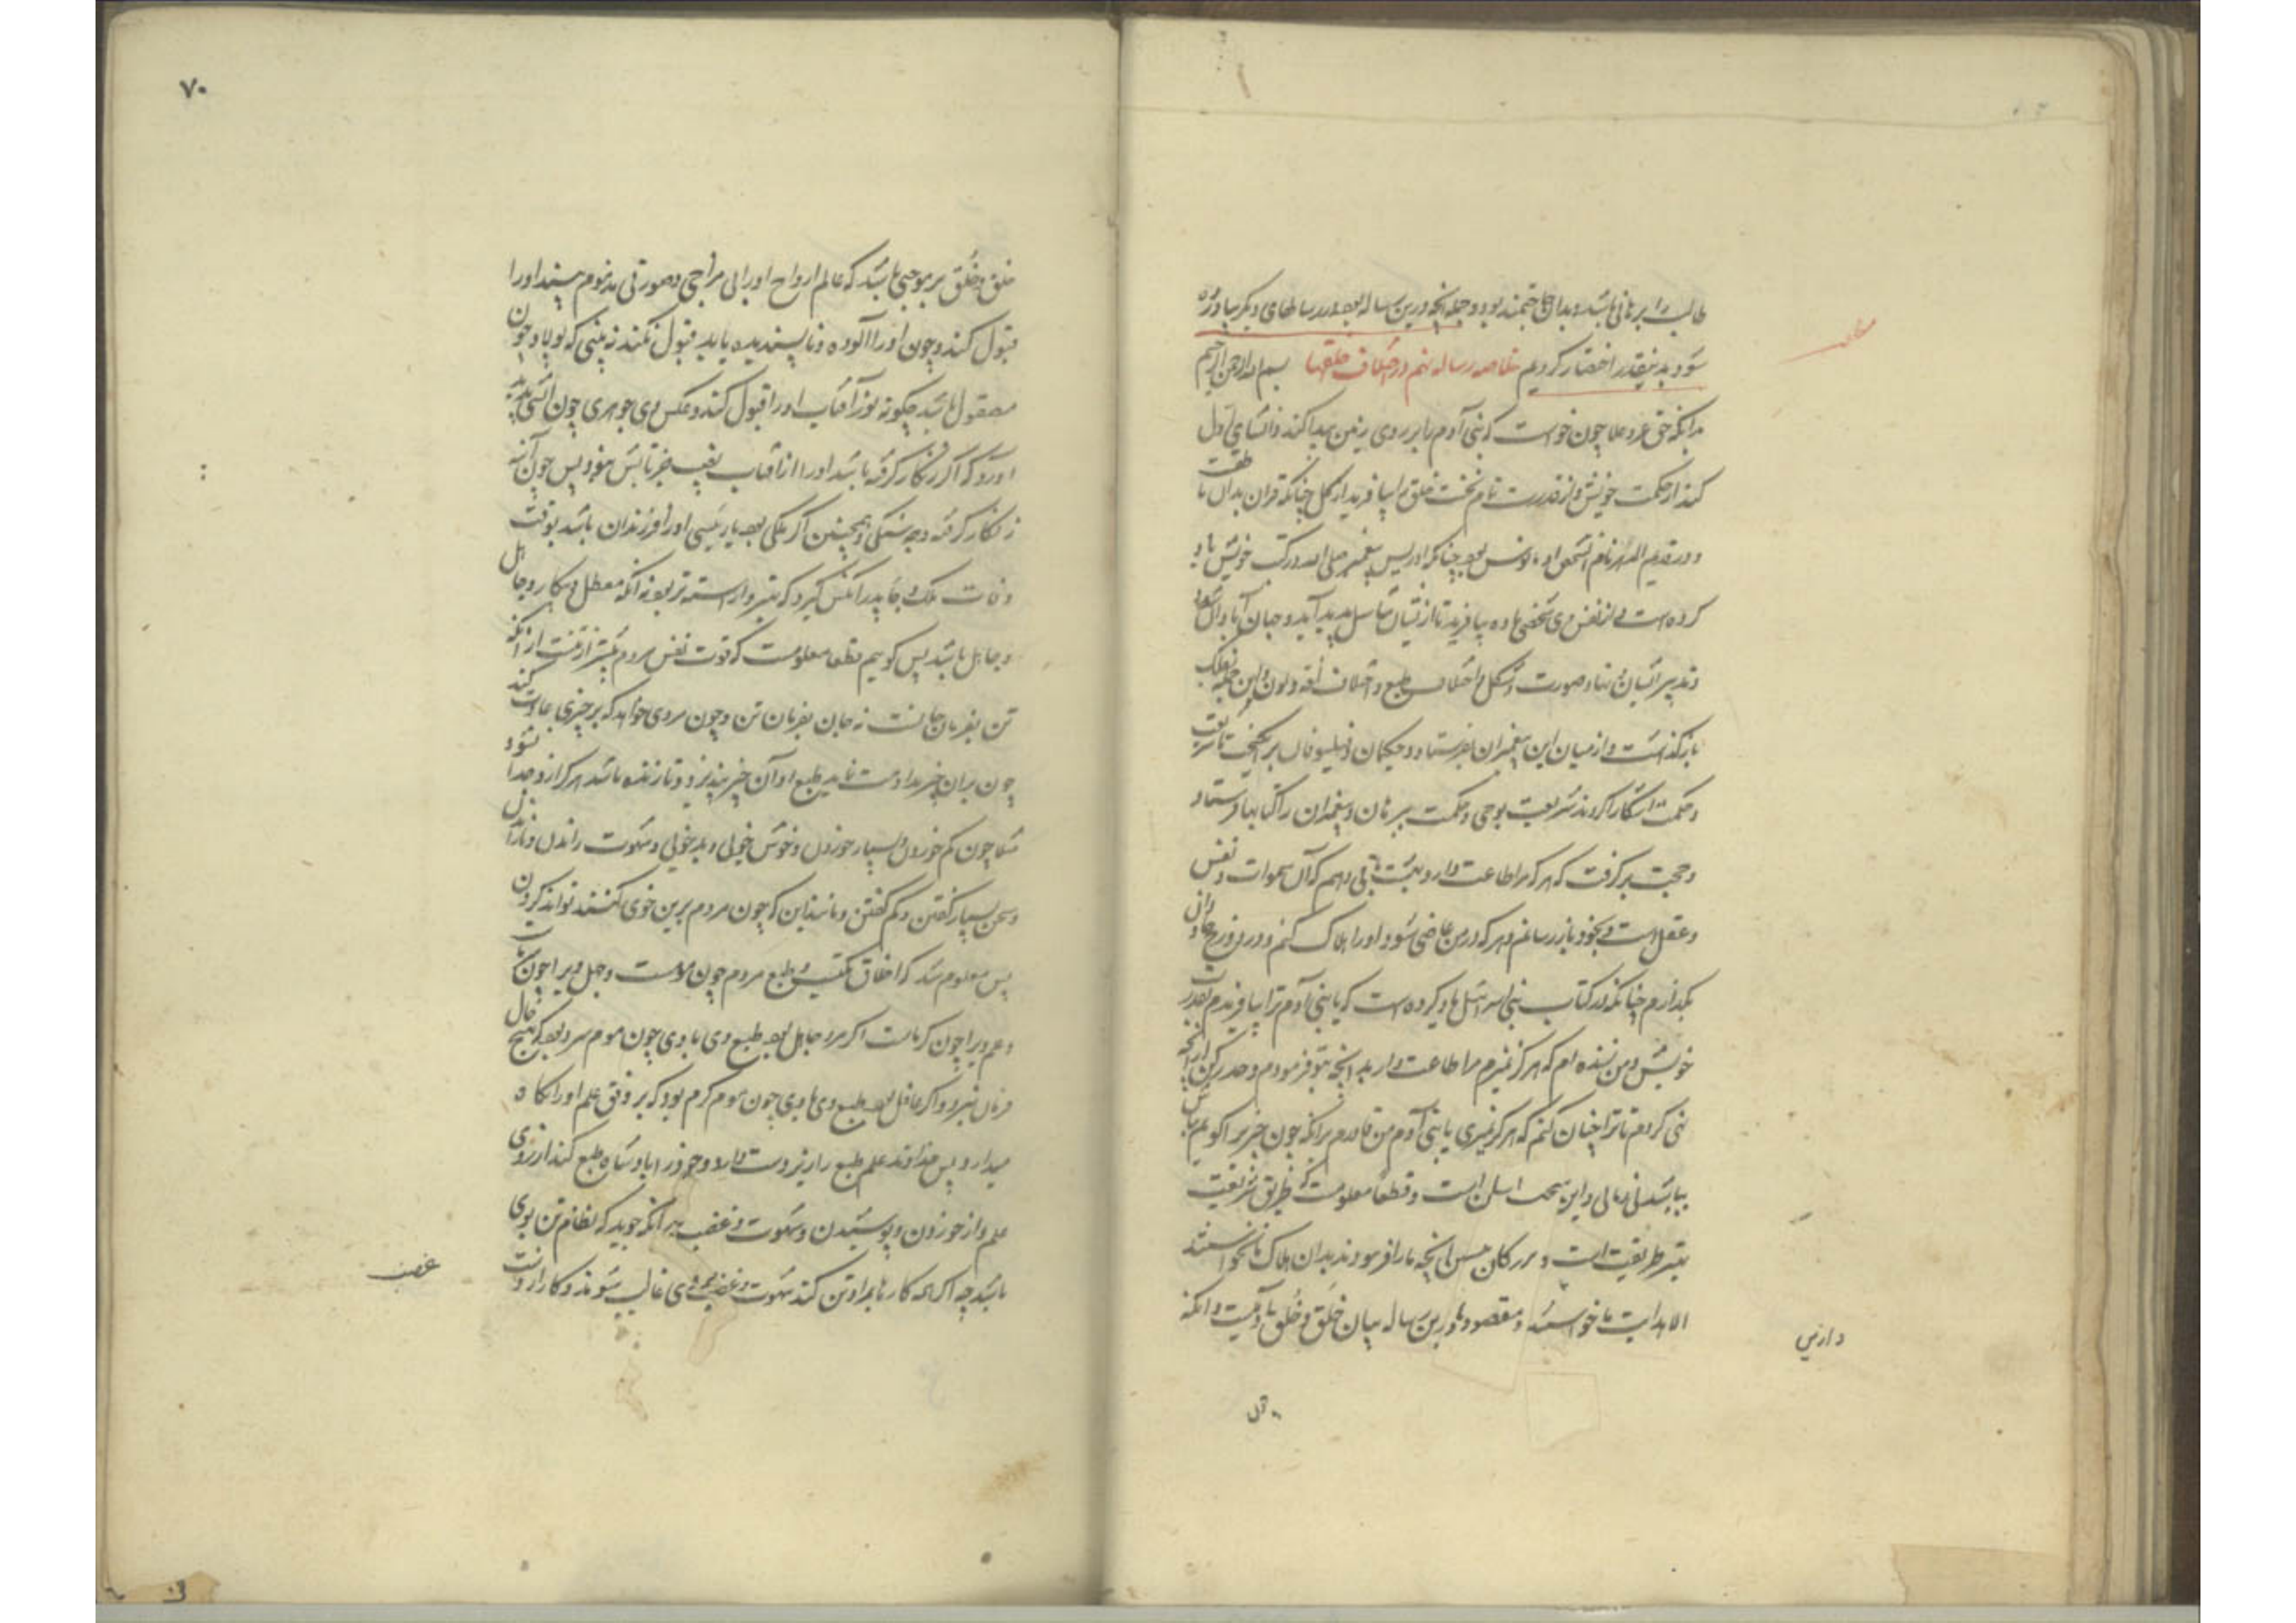 طالب را برهانی باشد و بدان حاجتمند بود و جمله آنچه درین رساله بود در رسالهای دیگر بیاورده
شود بدینقدر اختصار کردیم خلاصه رساله نهم در اختلاف خلقها بسم الله الرحمن الرحیم
بدانکه حق عز و علا چون خواست که بنی آدم را بر روی زمین پیدا کند و انشای اول
کند از حکمت خویش و از قدرت تام نخست خلق را بیافرید از گل چنانکه قران بدان ناطقست
و در قدیم الدهر نام آن شخص او بود چنانکه ادریس پیغمبر صلی الله در کتب خویش یاد
کرده است و از نفس وی شخصی ماده بیافرید تا از ایشان تناسل پدید آید و جهان آبادان شود
و تدبیر ایشان بنهاد و صورت و شکل و اختلاف طبع و اختلاف لغة و لون و این جمله بفلک
بازگذاشت و از میان این پیغمبران بفرستاد و حکیمان و فیلسوفان برانگیخت تا شریعت
و حکمت آشکارا کردند شریعت بوحی و حکمت ببرهان و پیغمبران را کتابها فرستاد
و حجت برگرفت که هر که مرا طاعت دارد بهشت باقی دهم که آن سموات و نفس
و عقل است و بخود باز رسانم و هر که در من عاصی شود او را هلاک کنم و در دوزخ جاودان
بگذارم چنانکه در کتاب بنی اسرائیل یاد کرده است که یا بنی آدم ترا بیافریدم بقدرت
خویش و من زنده ام که هرگز نمیرم مرا طاعت دار بدانچه بتو فرمودم و حذر کن از آنچه
نهی کردم تا ترا چنان کنم که هرگز نمیری یا بنی آدم من قادرم بر آنکه چون چیز را گویم باش
بباشد و این سخت آسان است و قطعا معلومست که طریق شریعت
بهتر طریقیست و بزرگان جنس آنچه ما را فرمودند بدان هلاک ما نخواستند
الا هدایت ما خواستند و مقصود ما درین رساله بیان خَلق و خُلق ما آدمیست و آنکه
دارنی
خلق و خُلق بر موجبی باشد که عالم ارواح او را بی مزاجی و صورتی مذموم بیند او را
قبول کند و چون او را آلوده و ناپسندیده یابد قبول نکند نه بینی که پولاد چون
مصقول باشد چگونه نور آفتاب او را قبول کند و عکس وی جوهری چون آتش پدید
آورد که اگر زنگار گرفته باشد او را از آفتاب نصیب جز تابش نبود پس چون آینه
زنگار گرفته و چه سنگی و همچنین اگر ملکی بود یا رئیسی او را فرزندان باشد بوقت
وفات ملک و جا پدر آنکس گیرد که بهتر و آراسته تر بود نه آنکه معطل و بیکار و جاهل
و جاهل باشد پس گوییم قطعا معلومست که قوت نفس مردم بیشتر از تنست از آنکه
تن بفرمان جانست نه جان بفرمان تن و چون مردی خواهد که بر چیزی عادت کند
چون بران چیز مداومت نماید طبع او آن چیز بپذیرد و تا زنده باشد هرگز ازو جدا نشود
مثلا چون کم خوردن و بسیار خوردن و خوش خویی و بدخویی و شهوت راندن و ناراندن
و سخن بسیار گفتن و کم گفتن و مانند این که چون مردم برین خوی کنند تواند کردن
پس معلوم شد که اخلاق مکتسب و طبع مردم چون مومست و جهل ویرا چون
و علم ویرا چون گرماست اگر مرد جاهل بود طبع وی با وی چون موم سرد بود که بهیچ حال
فرمان نبرد و اگر عاقل بود طبع وی با وی چون موم گرم بود که بر وفق علم او را نگاه
میدارد پس خداوند علم طبع را زیر دست دارد و خود را پادشاه طبع کند از روی
علم و از خوردن و پوشیدن و شهوت و غضب بدانکه جوید که نظام تن بوی
باشد چه اگر همه کارها بمراد تن کند شهوت و غضب بروی غالب شوند و کار از دست
غضب
۷۰